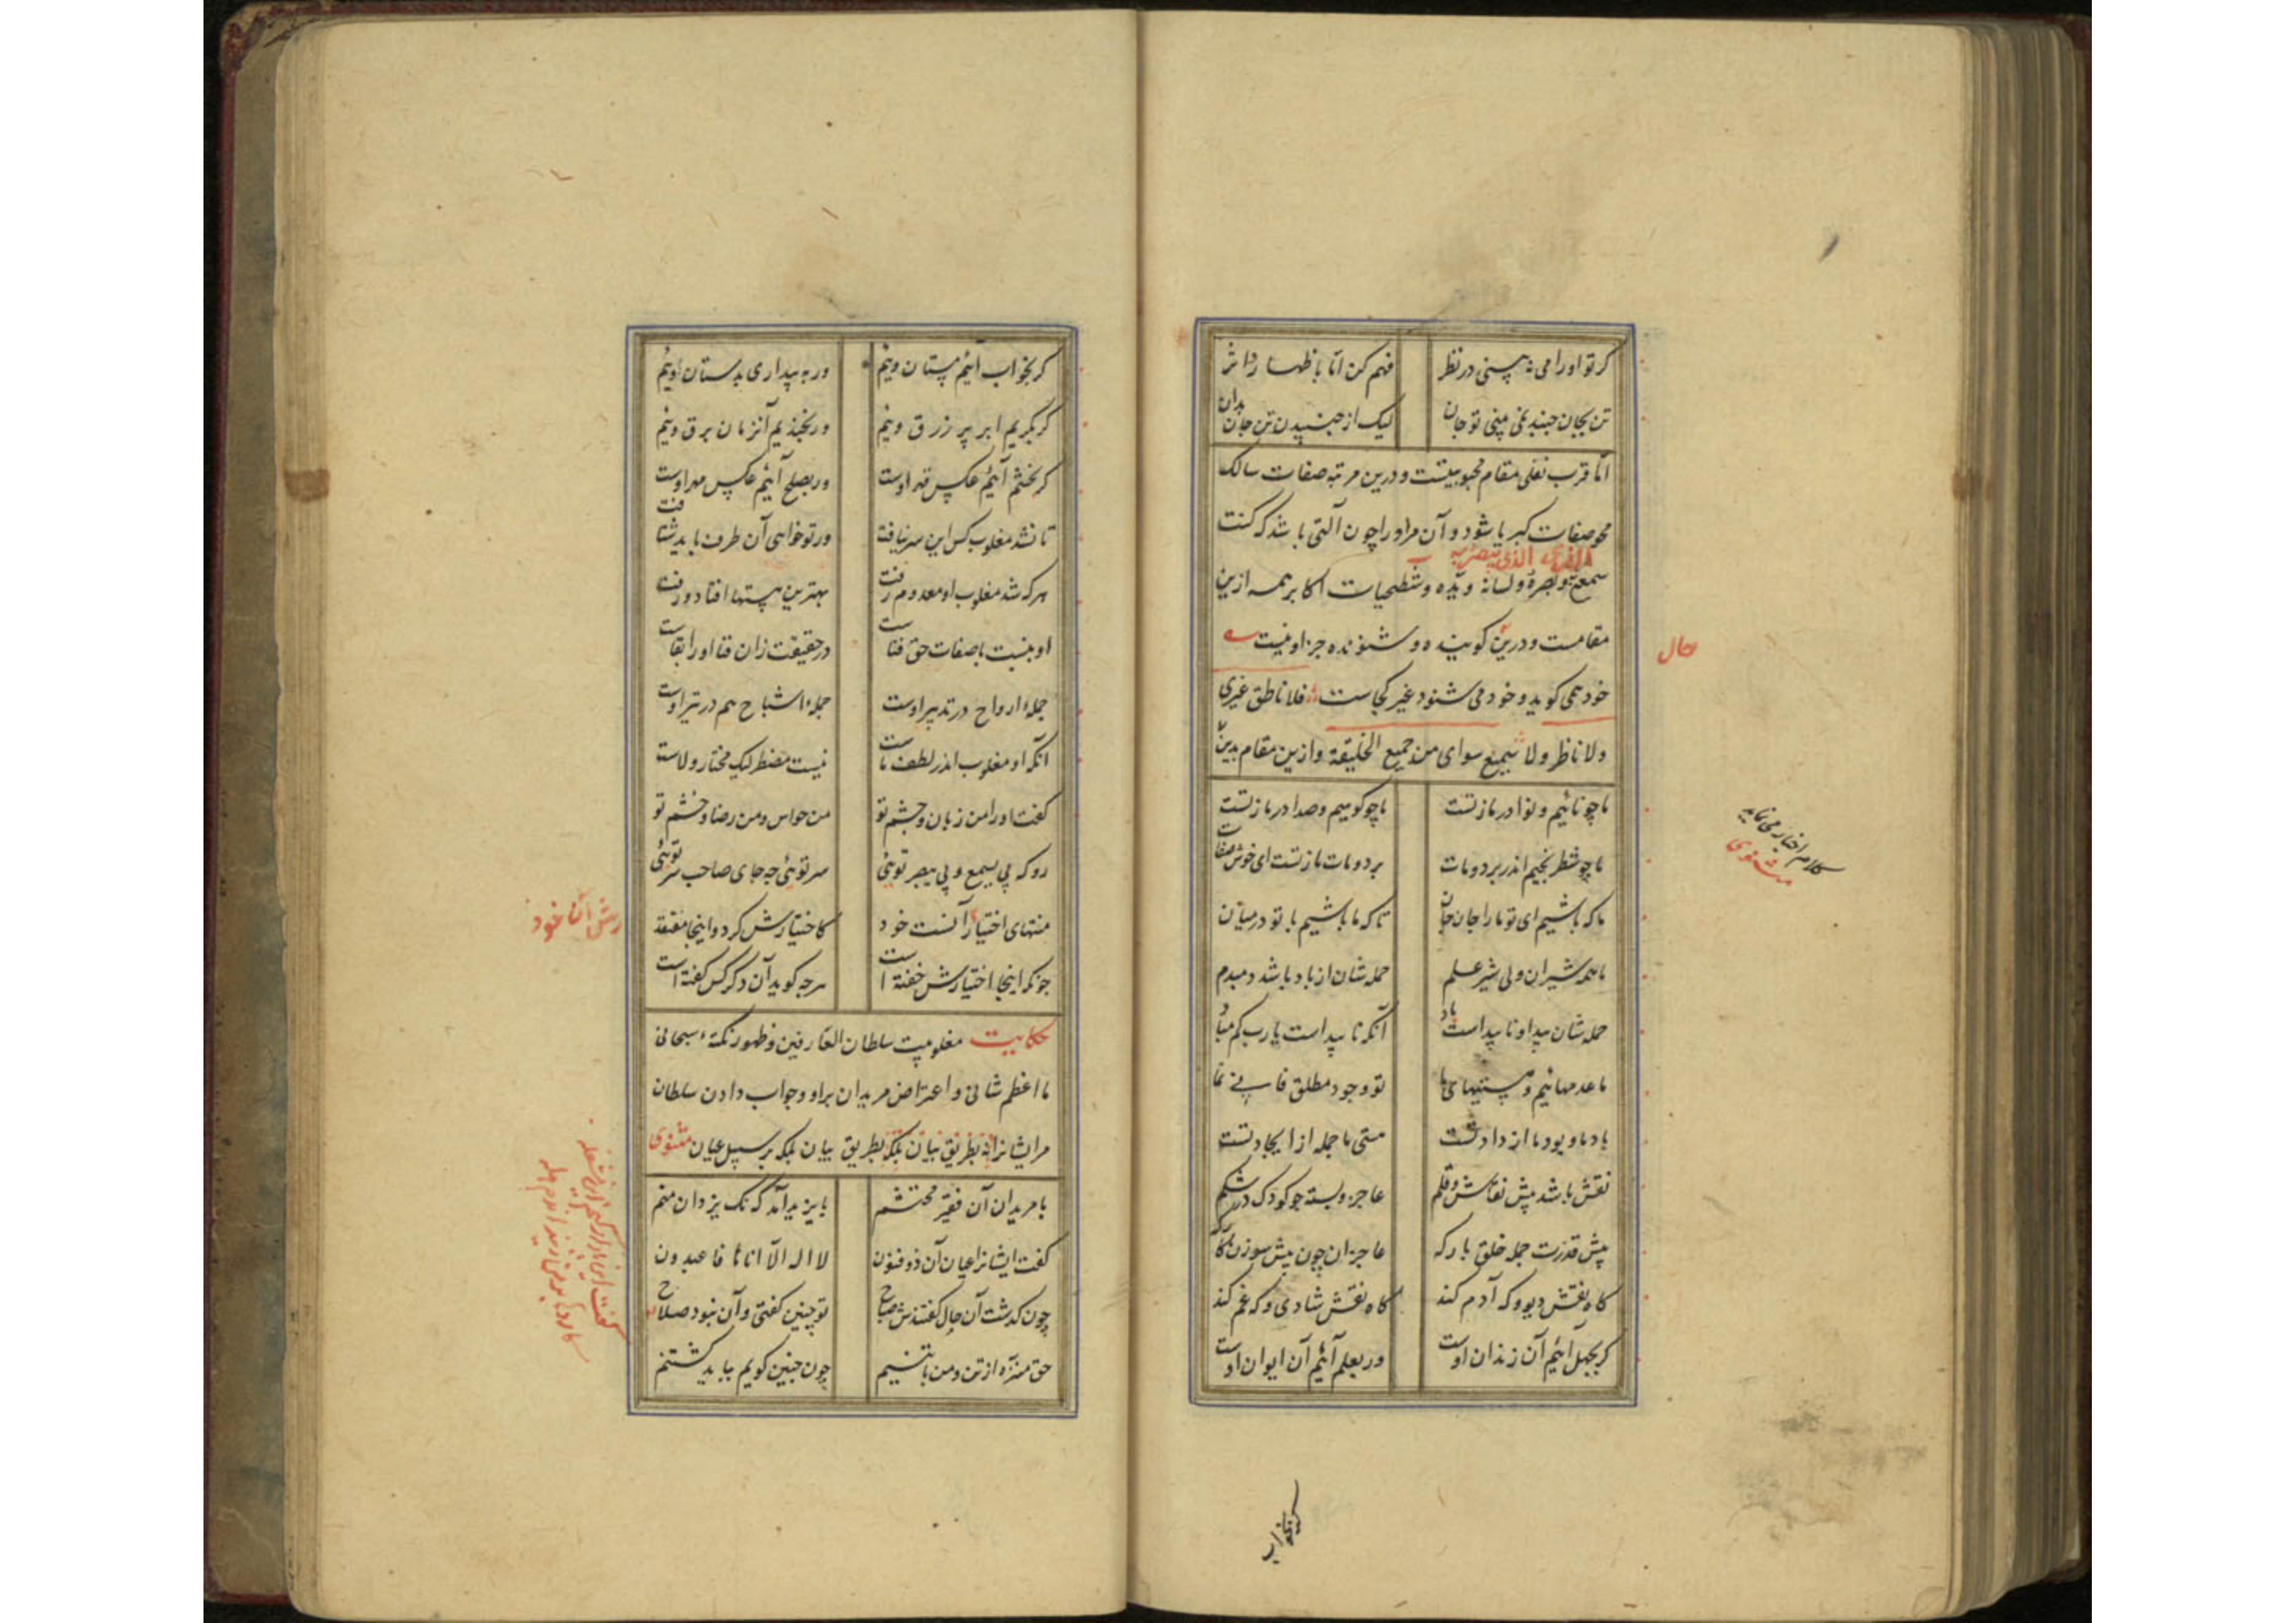 کر تو اورا می نه بینی در نظر فهم کن اما باظهار اثر
تن بجان جنبد نمی بینی تو جان لیک از جنبیدن تن جان بدان
اما قرب نفلی مقام محبوبیتست و درین مرتبه صفات سالک
محو صفات کبریا شود و آن مر اورا چون آلتی باشد که کنت
الذی یبصر به
سمعه و بصره و لسانه و یده و شطحیات اکابر همه ازین
مقامست و درین کوینده و شنونده جز او نیست
حال
خود همی کوید و خود می شنود غیر کجاست فلا ناطق غیری
ولا ناظر ولا سمیع سوای من جمیع الخلیقة و ازین مقام بدین
کلام اخبار می نماید
مثنوی
ما چو نائیم و نوا در ما ز تست ما چو کوهیم و صدا در ما ز تست
ما چو شطرنجیم اندر برد و مات برد و مات ما ز تست ای خوش صفات
ما که باشیم ای تو ما را جان جان تا که ما باشیم با تو در میان
ما همه شیران ولی شیر علم حمله شان از باد باشد دمبدم
حمله شان پیدا و ناپیداست باد آنکه ناپیداست یا رب کم مباد
ما عدمهائیم و هستیهای ما تو وجود مطلق فانی نما
باد ما و بود ما از داد تست هستی ما جمله از ایجاد تست
نقش باشد پیش نقاش و قلم عاجز و بسته چو کودک در شکم
پیش قدرت جمله خلق بارکه عاجزان چون پیش سوزن کارکه
کاه نقش دیو و که آدم کند کاه نقش شادی و که غم کند
کر بجهل آئیم آن زندان اوست ور بعلم آئیم آن ایوان اوست
کر بخواب
کر بخواب آئیم مستان ویئم ور به بیداری بدستان اوئیم
کر بکریم ابر پر زرق ویئم ور بخندیم آنزمان برق ویئم
کر بخشم آئیم عکس قهر اوست ور بصلح آئیم عکس مهر اوست
تا نشد مغلوب کس این سر نیافت ور تو خواهی آن طرف باید شتافت
هر که شد مغلوب او معدوم رفت بهترین هستها افتاد و رفت
او بنسبت با صفات حق فناست در حقیقت زان فنا اورا بقاست
جملهٔ ارواح در تدبیر اوست جملهٔ اشباح هم در تیر اوست
آنکه او مغلوب اندر لطف ماست نیست مضطر لیک مختار ولاست
کفت اورا من زبان و چشم تو من حواس و من رضا و خشم تو
رو که بی یسمع و بی یبصر توئی سر توئی چه جای صاحب سر توئی
منتهای اختیار آنست خود کاختیارش کرد و اینجا مفتقد
چونکه اینجا اختیارش خفته است هر چه کوید آن دکر کس کفته است
حکایت مغلوبیت سلطان العارفین و ظهور نکتهٔ سبحانی
ما اعظم شانی و اعتراض مریدان بر او و جواب دادن سلطان
مر ایشانرا نه بطریق بیان بلکه بطریق بیان بلکه بر سبیل عیان مثنوی
با مریدان آن فقیر محتشم بایزید آمد که نک یزدان منم
کفت ایشانرا عیان آن ذو فنون لا اله الا انا ها فاعبدون
چون کذشت آن حال کفتندش صباح تو چنین کفتی و آن نبود صلاح
حق منزه از تن و من با تنم چون چنین کویم بباید کشتنم